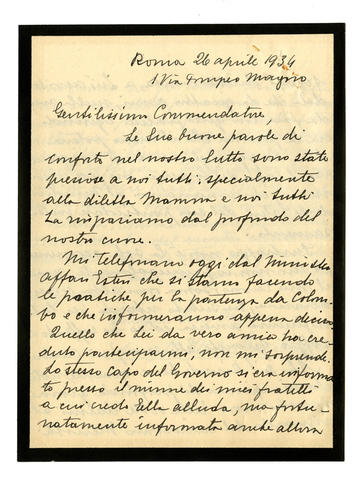 Roma 26 aprile 1934
1 Via Pompeo Magno
Gentilissimo Commendatore,
Le Sue buone parole di
conforto nel nostro lutto sono state
preziose a noi tutti, specialmente
alla diletta Mamma e noi tutti
La ringraziamo dal profondo del
nostro cuore.
Mi telefonano oggi dal Ministero
affari Esteri che si stanno facendo
le pratiche per la partenza da Colom-
bo e che informeranno appena deciso.
Quello che Lei da vero amico ha cre-
duto parteciparmi, non mi sorprende.
Lo stesso Capo del Governo si era informa
to presso il minore dei miei fratelli
a cui credo Ella alluda, ma fortu-
natamente informata anche allora